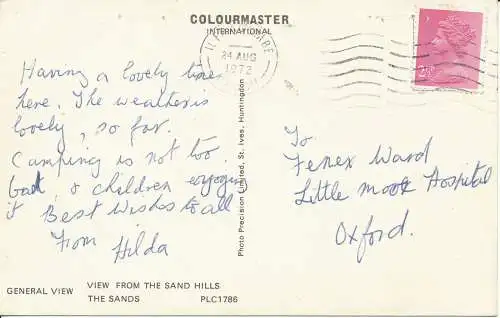 COLOURMASTER
INTERNATIONAL
ILFRACOMBE
24 AUG
1972
Having a lovely time
here. The weather is
lovely, so far.
Camping is not too
bad, & children enjoying
it Best Wishes to all
From Hilda
Photo Precision Limited, St. Ives, Huntingdon
To
Fenex Ward
Little Mook Hospital
Oxford.
GENERAL VIEW
VIEW FROM THE SAND HILLS
THE SANDS PLC1786